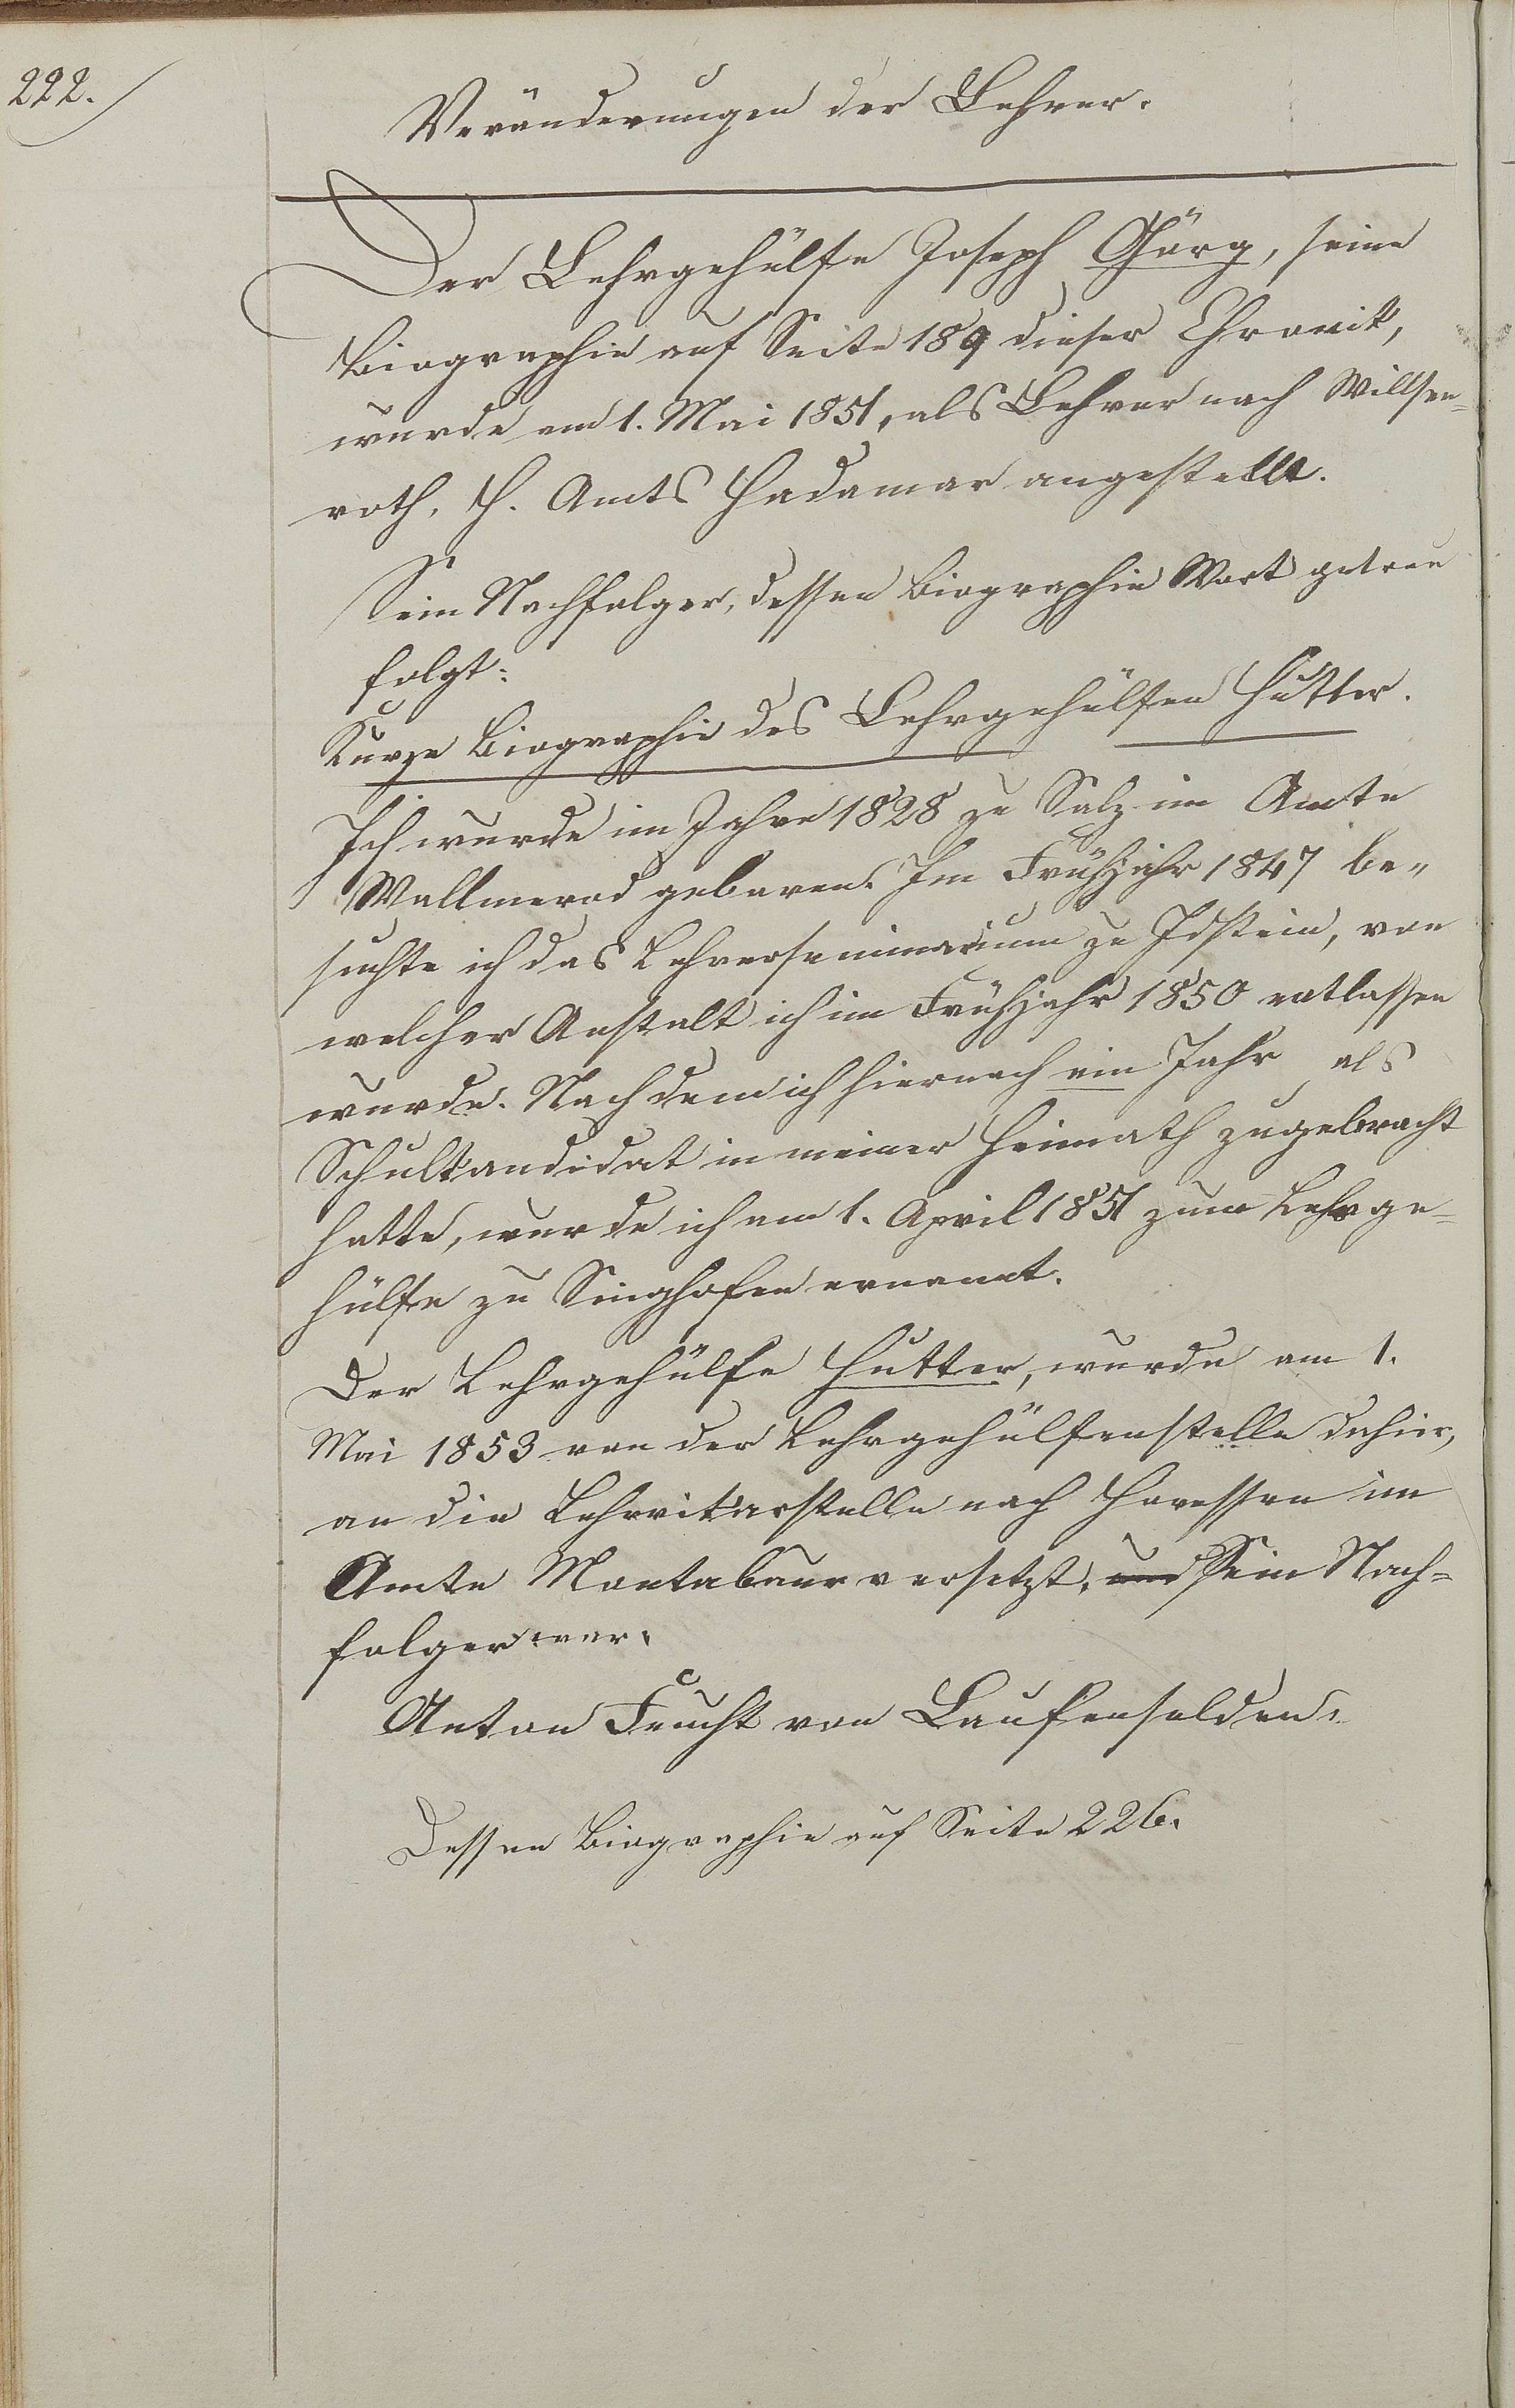 222.
Veränderungen der Lehrer.
Der Lehrgehülfe Joseph Görg, seine
Biographie auf Seite 189 dieser Chronik,
wurde am 1. Mai 1851, als Lehrer nach Willsen-
roth, H. Amts Hadamar angestellt.
Sein Nachfolger, dessen Biographie Wort getreu
folgt:
Kurze Biographie des Lehrgehülfen Hutter.
Ich wurde im Jahre 1828 zu Salz im Amte
Wallmerod geboren. Im Frühjahr 1847 be-
suchte ich das Lehrerseminarium zu Idstein, von
welcher Anstalt ich im Frühjahr 1850 entlassen
wurde. Nachdem ich hiernach ein Jahr als
Schulkandidat in meiner Heimath zugebracht
hatte, wurde ich am 1. April 1851 zum Lehrge-
hülfe zu Singhofen ernannt.
Der Lehrgehülfe Hutter, wurde am 1.
Mai 1853 von der Lehrgehülfenstelle dahier,
an die Lehrvikarstelle nach Horessen im
Amte Montabaur versetzt, und Sein Nach-
folger war.
Anton Feucht von Laufenselden.
Dessen Biographie auf Seite 226.